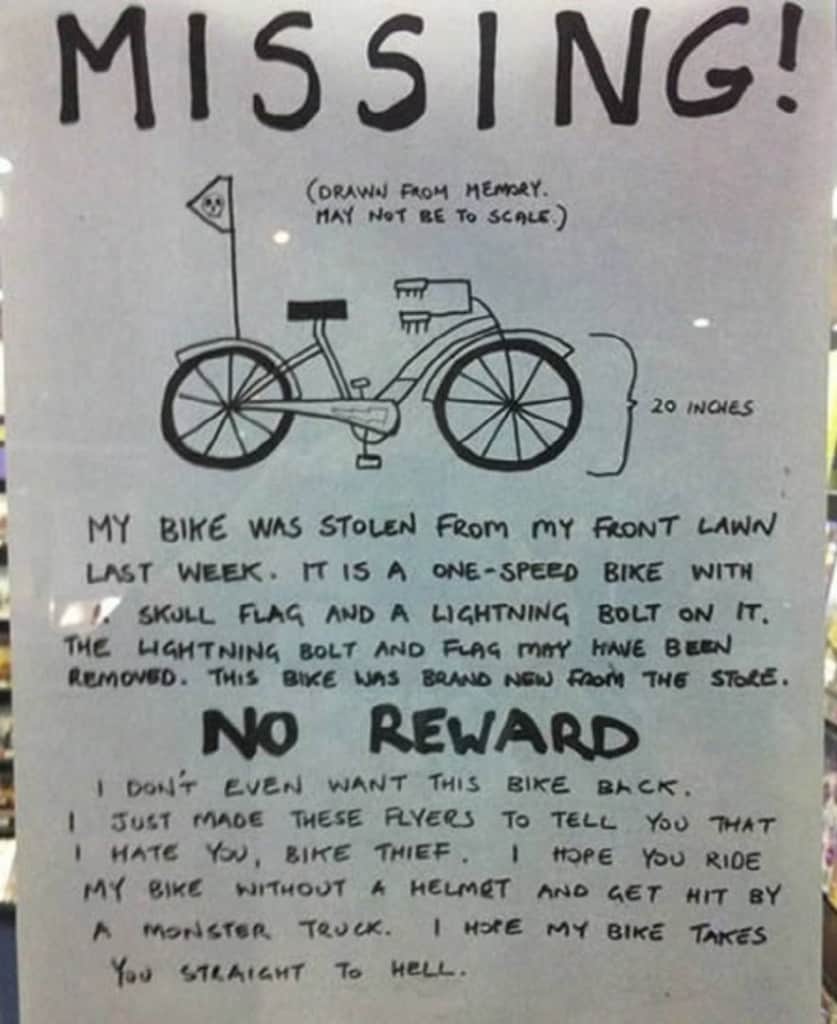 MISSING!
(DRAWN FROM MEMORY.
MAY NOT BE TO SCALE.)
20 INCHES
MY BIKE WAS STOLEN FROM MY FRONT LAWN
LAST WEEK. IT IS A ONE-SPEED BIKE WITH
SKULL FLAG AND A LIGHTNING BOLT ON IT.
THE LIGHTNING BOLT AND FLAG MAY HAVE BEEN
REMOVED. THIS BIKE WAS BRAND NEW FROM THE STORE.
NO REWARD
I DON'T EVEN WANT THIS BIKE BACK.
I JUST MADE THESE FLYERS TO TELL YOU THAT
I HATE YOU, BIKE THIEF. I HOPE YOU RIDE
MY BIKE WITHOUT A HELMET AND GET HIT BY
A MONSTER TRUCK. I HOPE MY BIKE TAKES
YOU STRAIGHT TO HELL.